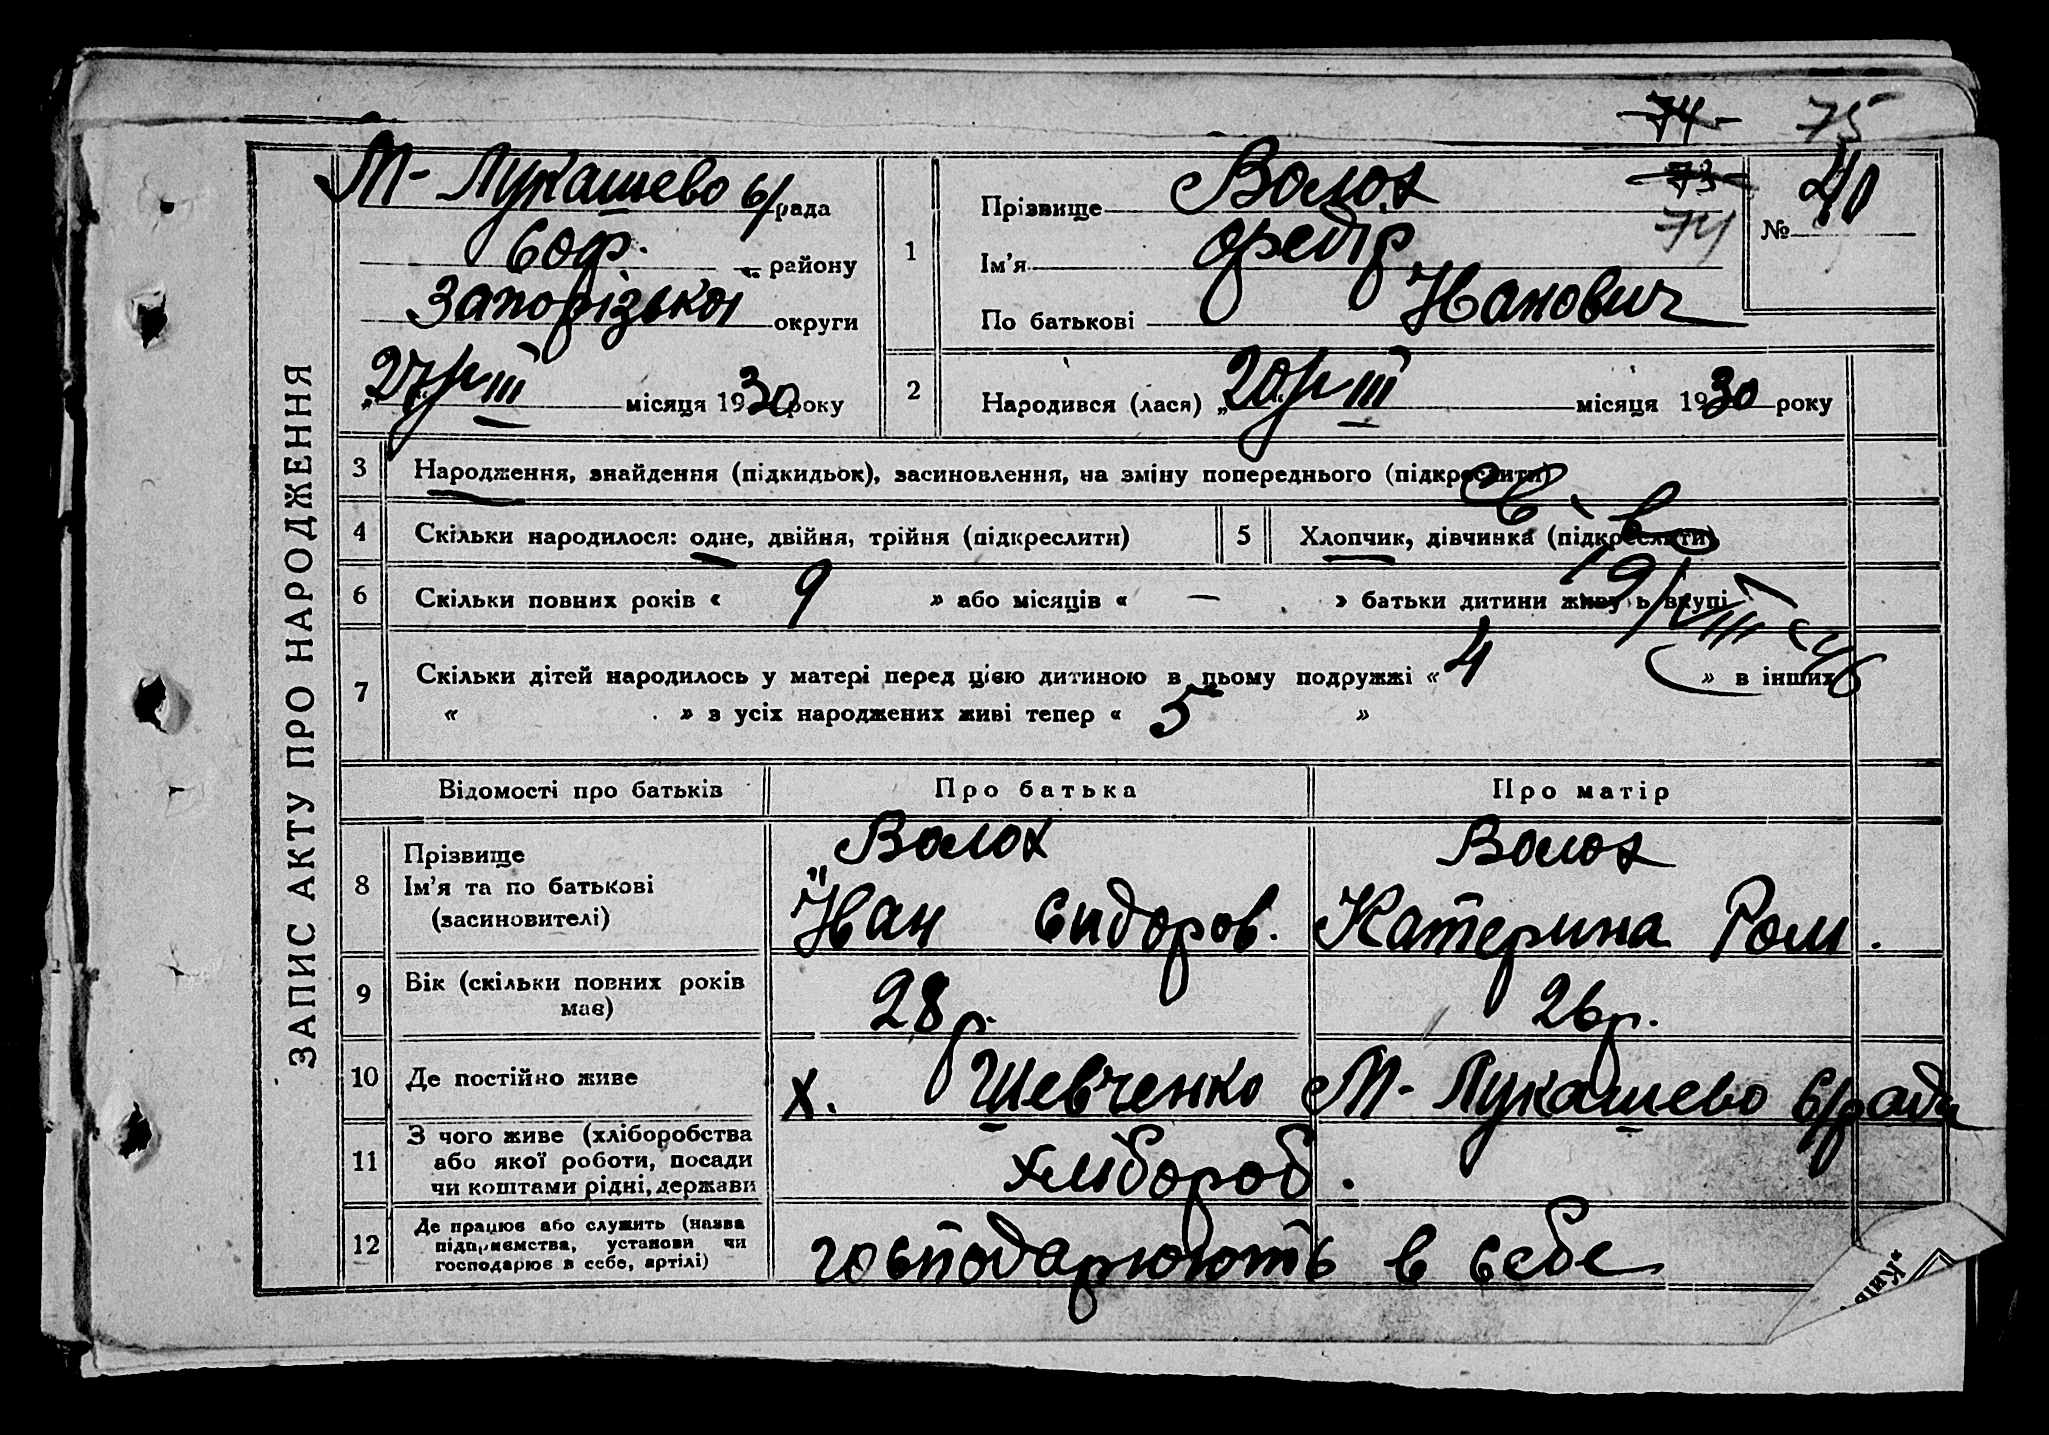 74 75
М- Лукашево с/рада
Соф. району
Запорізької округи
„27" р III місяця 1930 року
1
Прізвище Волох
Ім'я Федір
По батькові Іванович
73
74
№ 40
2
Народився (лася) „20" р III місяця 1930 року
ЗАПИС АКТУ ПРО НАРОДЖЕННЯ
3 Народження, знайдення (підкидьок), засиновлення, на зміну попереднього (підкреслити)
4 Скільки народилося: одне, двійня, трійня (підкреслити) 5 Хлопчик, дівчинка (підкреслити)
св-во
6 Скільки повних років « 9 » або місяців « — » батьки дитини живуть вкупі
19/VIII 46
7 Скільки дітей народилось у матері перед цією дитиною в цьому подружжі « 4 » в інших
« » з усіх народжених живі тепер « 5 »
Відомості про батьків Про батька Про матір
8 Прізвище Волох Волох
Ім'я та по батькові Іван Сидоров. Катерина Ром.
(засиновителі)
9 Вік (скільки повних років має) 28 р. 26 р.
10 Де постійно живе х. Шевченко М- Лукашево с/ради
11 З чого живе (хліборобства
або якої роботи, посади хлібороб.
чи коштами рідні, держави
12 Де працює або служить (назва
підприємства, установи чи господарюють в себе
господарює в себе, артілі)
Київ